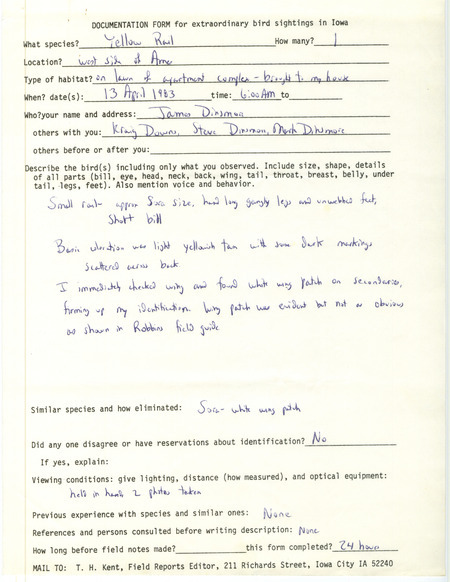 DOCUMENTATION FORM for extraordinary bird sightings in Iowa
What species? Yellow Rail How many? 1
Location? west side of Ames
Type of habitat? on lawn of apartment complex - brought to my house
When? date(s): 13 April 1983 time: 6:00 AM to
Who? your name and address: James Dinsmore
others with you: Craig Downs, Steve Dinsmore, Mark Dinsmore
others before or after you:
Describe the bird(s) including only what you observed. Include size, shape, details
of all parts (bill, eye, head, neck, back, wing, tail, throat, breast, belly, under
tail, legs, feet). Also mention voice and behavior.
Small rail - approx Sora size, had long gangly legs and unwebbed feet,
short bill
Basic coloration was light yellowish tan with some dark markings
scattered across back
I immediately checked wing and found white wing patch on secondaries,
firming up my identification. Wing patch was evident but not as obvious
as shown in Robbins field guide
Similar species and how eliminated: Sora - white wing patch
Did any one disagree or have reservations about identification? No
If yes, explain:
Viewing conditions: give lighting, distance (how measured), and optical equipment:
held in hand 2 photos taken
Previous experience with species and similar ones: None
References and persons consulted before writing description: None
How long before field notes made? this form completed? 24 hours
MAIL TO: T. H. Kent, Field Reports Editor, 211 Richards Street, Iowa City IA 52240